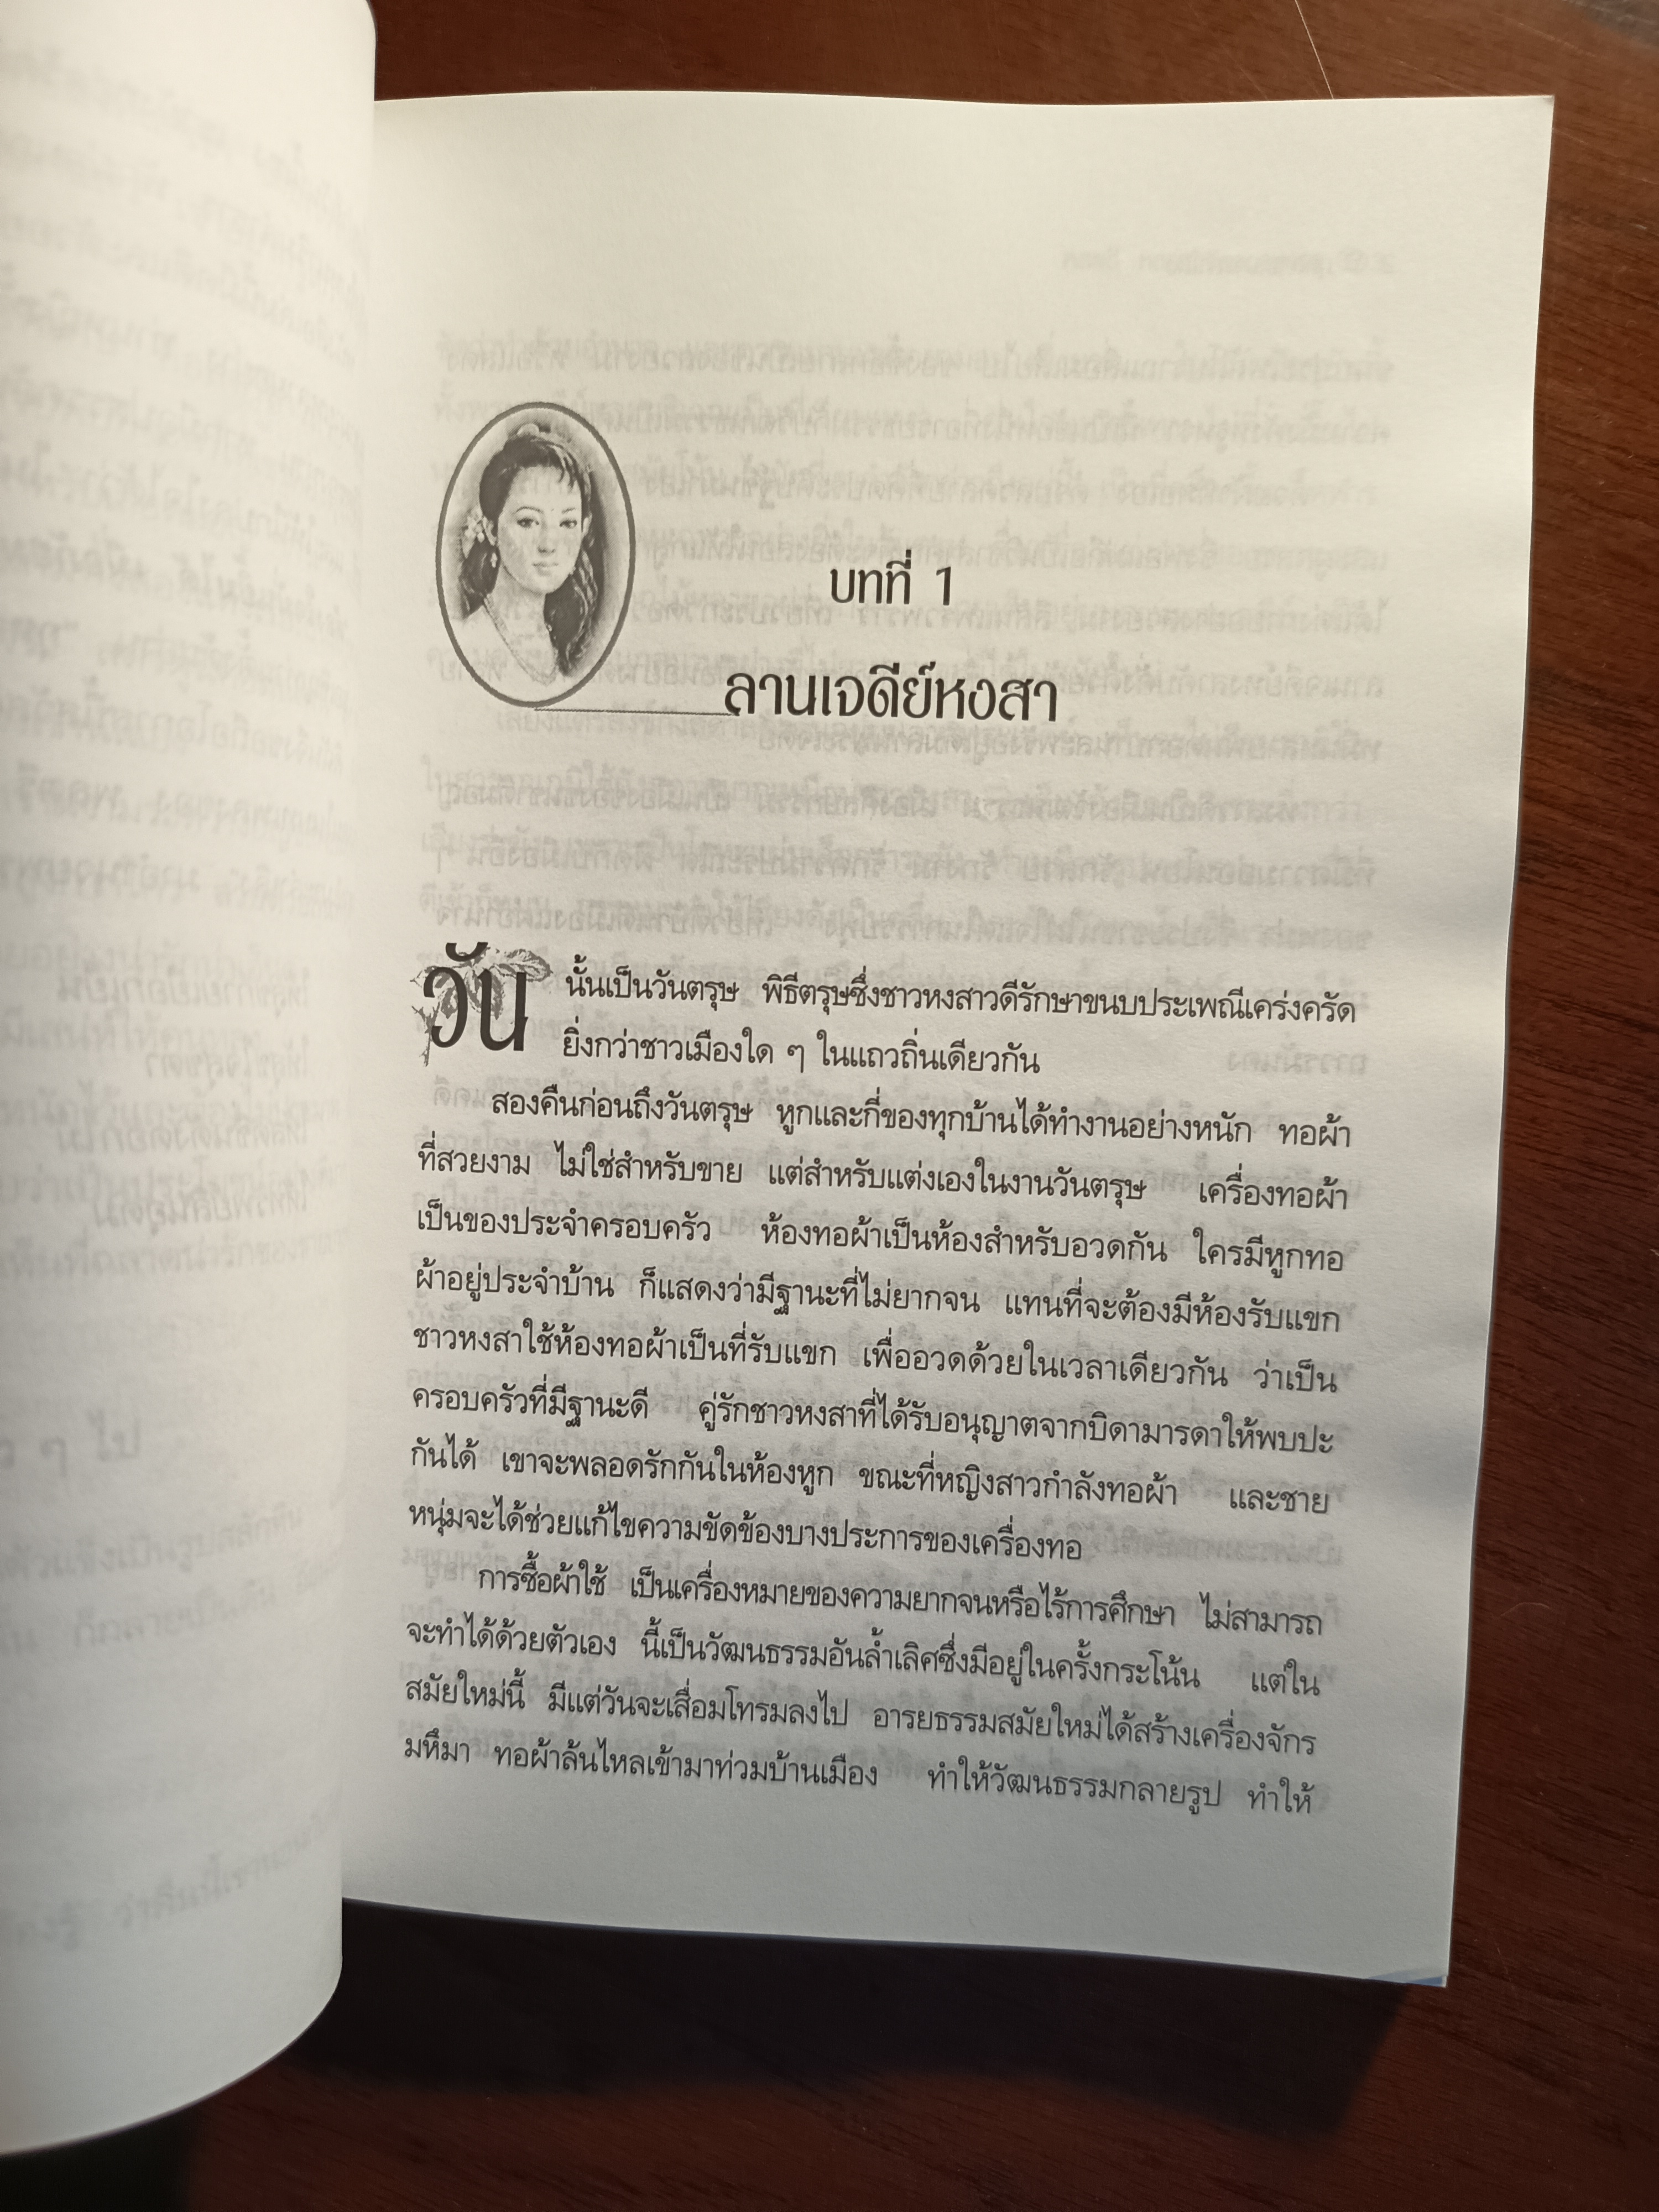 บทที่ 1
ลานเจดีย์หงสา
วันนั้นเป็นวันตรุษ พิธีตรุษซึ่งชาวหงสาวดีรักษาขนบประเพณีเคร่งครัด
ยิ่งกว่าชาวเมืองใด ๆ ในแถวถิ่นเดียวกัน
สองคืนก่อนถึงวันตรุษ หูกและกี่ของทุกบ้านได้ทำงานอย่างหนัก ทอผ้า
ที่สวยงาม ไม่ใช่สำหรับขาย แต่สำหรับแต่งเองในงานวันตรุษ เครื่องทอผ้า
เป็นของประจำครอบครัว ห้องทอผ้าเป็นห้องสำหรับอวดกัน ใครมีหูกทอ
ผ้าอยู่ประจำบ้าน ก็แสดงว่ามีฐานะที่ไม่ยากจน แทนที่จะต้องมีห้องรับแขก
ชาวหงสาใช้ห้องทอผ้าเป็นที่รับแขก เพื่ออวดด้วยในเวลาเดียวกัน ว่าเป็น
ครอบครัวที่มีฐานะดี คู่รักชาวหงสาที่ได้รับอนุญาตจากบิดามารดาให้พบปะ
กันได้ เขาจะพลอดรักกันในห้องหูก ขณะที่หญิงสาวกำลังทอผ้า และชาย
หนุ่มจะได้ช่วยแก้ไขความขัดข้องบางประการของเครื่องทอ
การซื้อผ้าใช้ เป็นเครื่องหมายของความยากจนหรือไร้การศึกษา ไม่สามารถ
จะทำได้ด้วยตัวเอง นี้เป็นวัฒนธรรมอันล้ำเลิศซึ่งมีอยู่ในครั้งกระโน้น แต่ใน
สมัยใหม่นี้ มีแต่วันจะเสื่อมโทรมลงไป อารยธรรมสมัยใหม่ได้สร้างเครื่องจักร
มหึมา ทอผ้าล้นไหลเข้ามาท่วมบ้านเมือง ทำให้วัฒนธรรมกลายรูป ทำให้